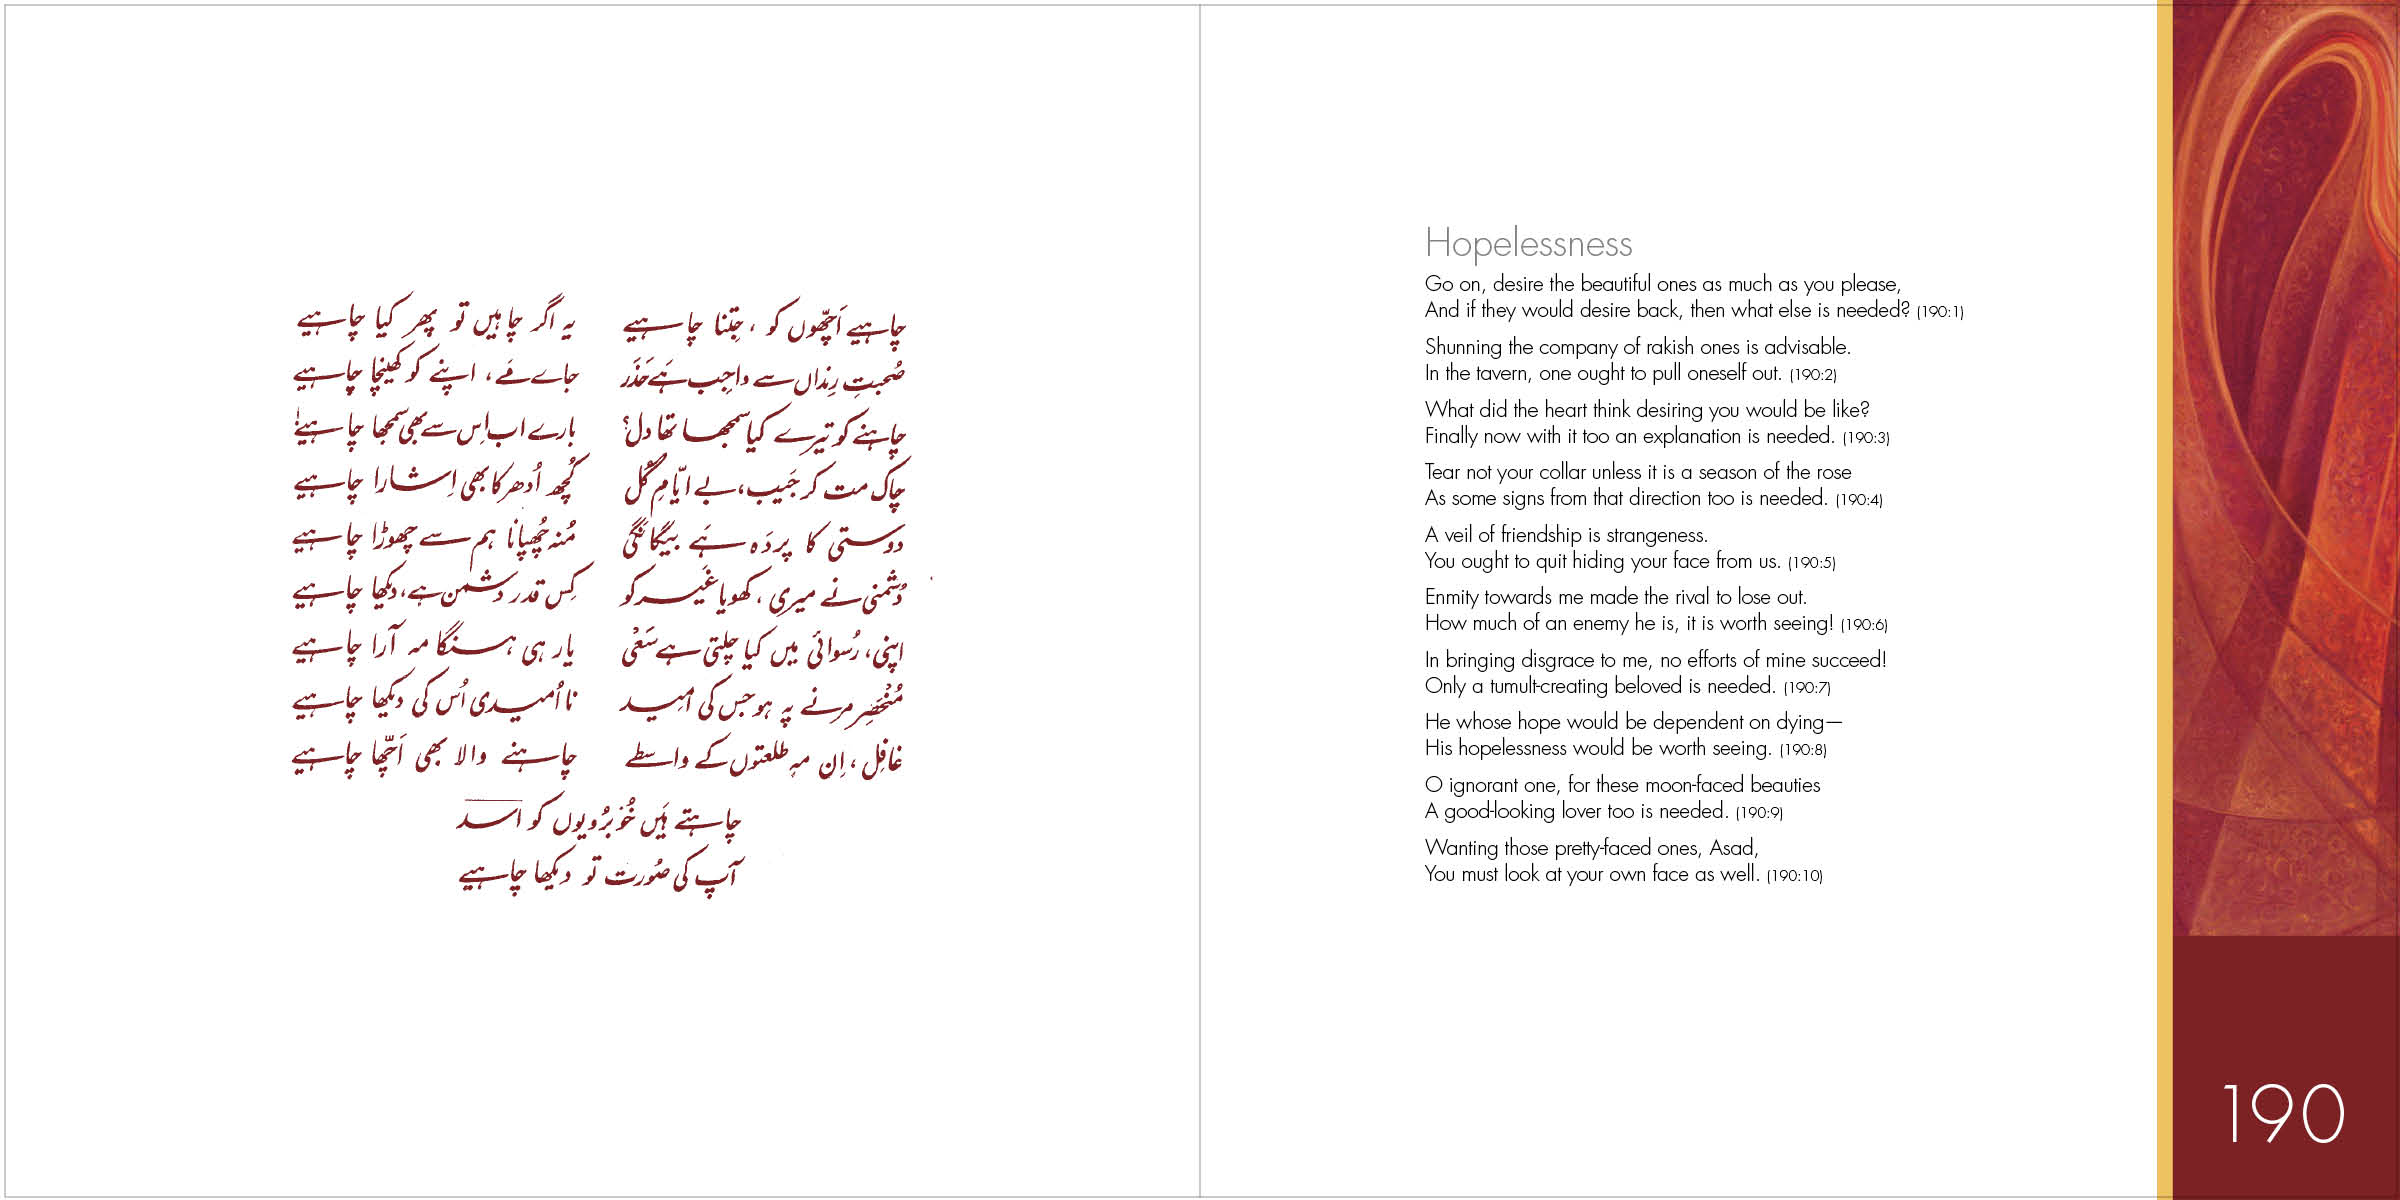 چاہیے اَچھّوں کو ، جِتنا چاہیے
یہ اگر چاہیں تو پھر کیا چاہیے
صُحبتِ رِنداں سے واجِب ہَے حَذَر
جاے مَے ، اپنے کو کھینچا چاہیے
چاہنے کو تیرے کیا سمجھا تھا دل؟
بارے اب اِس سے بھی سمجھا چاہیے!
چاک مت کر جَیب ، بے ایّامِ گُل
کُچھ اُدھر کا بھی اِشارا چاہیے
دوستی کا پردَہ ہَے بیگانگی
مُنہ چُھپانا ہم سے چھوڑا چاہیے
دُشمنی نے میری ، کھویا غَیر کو
کِس قدر دشمن ہے ، دیکھا چاہیے
اپنی ، رُسوائی میں کیا چلتی ہے سَعْی
یار ہی ہنگامہ آرا چاہیے
مُنْحَصِر مرنے پہ ہو جس کی اُمید
نا اُمیدی اُس کی دیکھا چاہیے
غافِل ، اِن مہ طلعتوں کے واسطے
چاہنے والا بھی اَچھّا چاہیے
چاہتے ہَیں خُوبرُویوں کو اسد
آپ کی صُورت تو دیکھا چاہیے
Hopelessness
Go on, desire the beautiful ones as much as you please,
And if they would desire back, then what else is needed? (190:1)
Shunning the company of rakish ones is advisable.
In the tavern, one ought to pull oneself out. (190:2)
What did the heart think desiring you would be like?
Finally now with it too an explanation is needed. (190:3)
Tear not your collar unless it is a season of the rose
As some signs from that direction too is needed. (190:4)
A veil of friendship is strangeness.
You ought to quit hiding your face from us. (190:5)
Enmity towards me made the rival to lose out.
How much of an enemy he is, it is worth seeing! (190:6)
In bringing disgrace to me, no efforts of mine succeed!
Only a tumult-creating beloved is needed. (190:7)
He whose hope would be dependent on dying—
His hopelessness would be worth seeing. (190:8)
O ignorant one, for these moon-faced beauties
A good-looking lover too is needed. (190:9)
Wanting those pretty-faced ones, Asad,
You must look at your own face as well. (190:10)
190